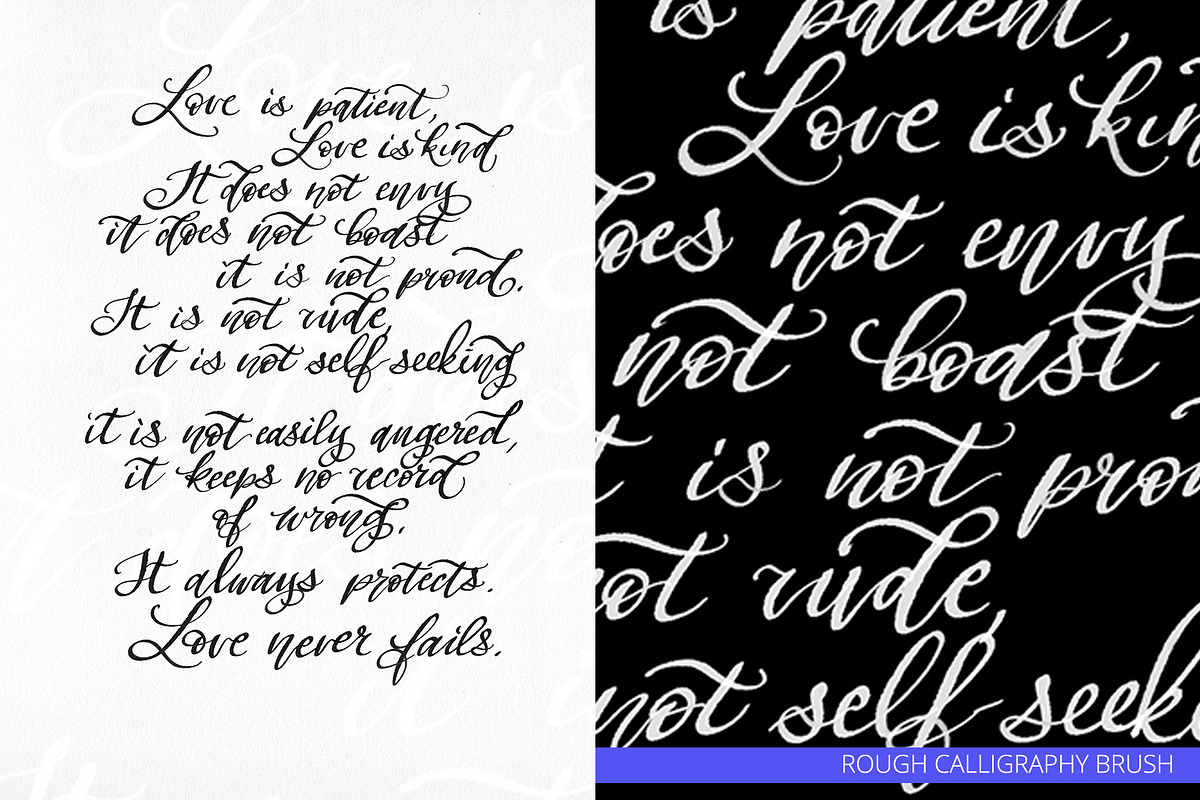 Love is patient,
Love is kind
It does not envy
it does not boast
it is not proud.
It is not rude,
it is not self-seeking
it is not easily angered,
it keeps no record
of wrong.
It always protects.
Love never fails.
is patient,
Love is kin
does not envy
not boast
t is not pro
not rude,
not self seek
ROUGH CALLIGRAPHY BRUSH